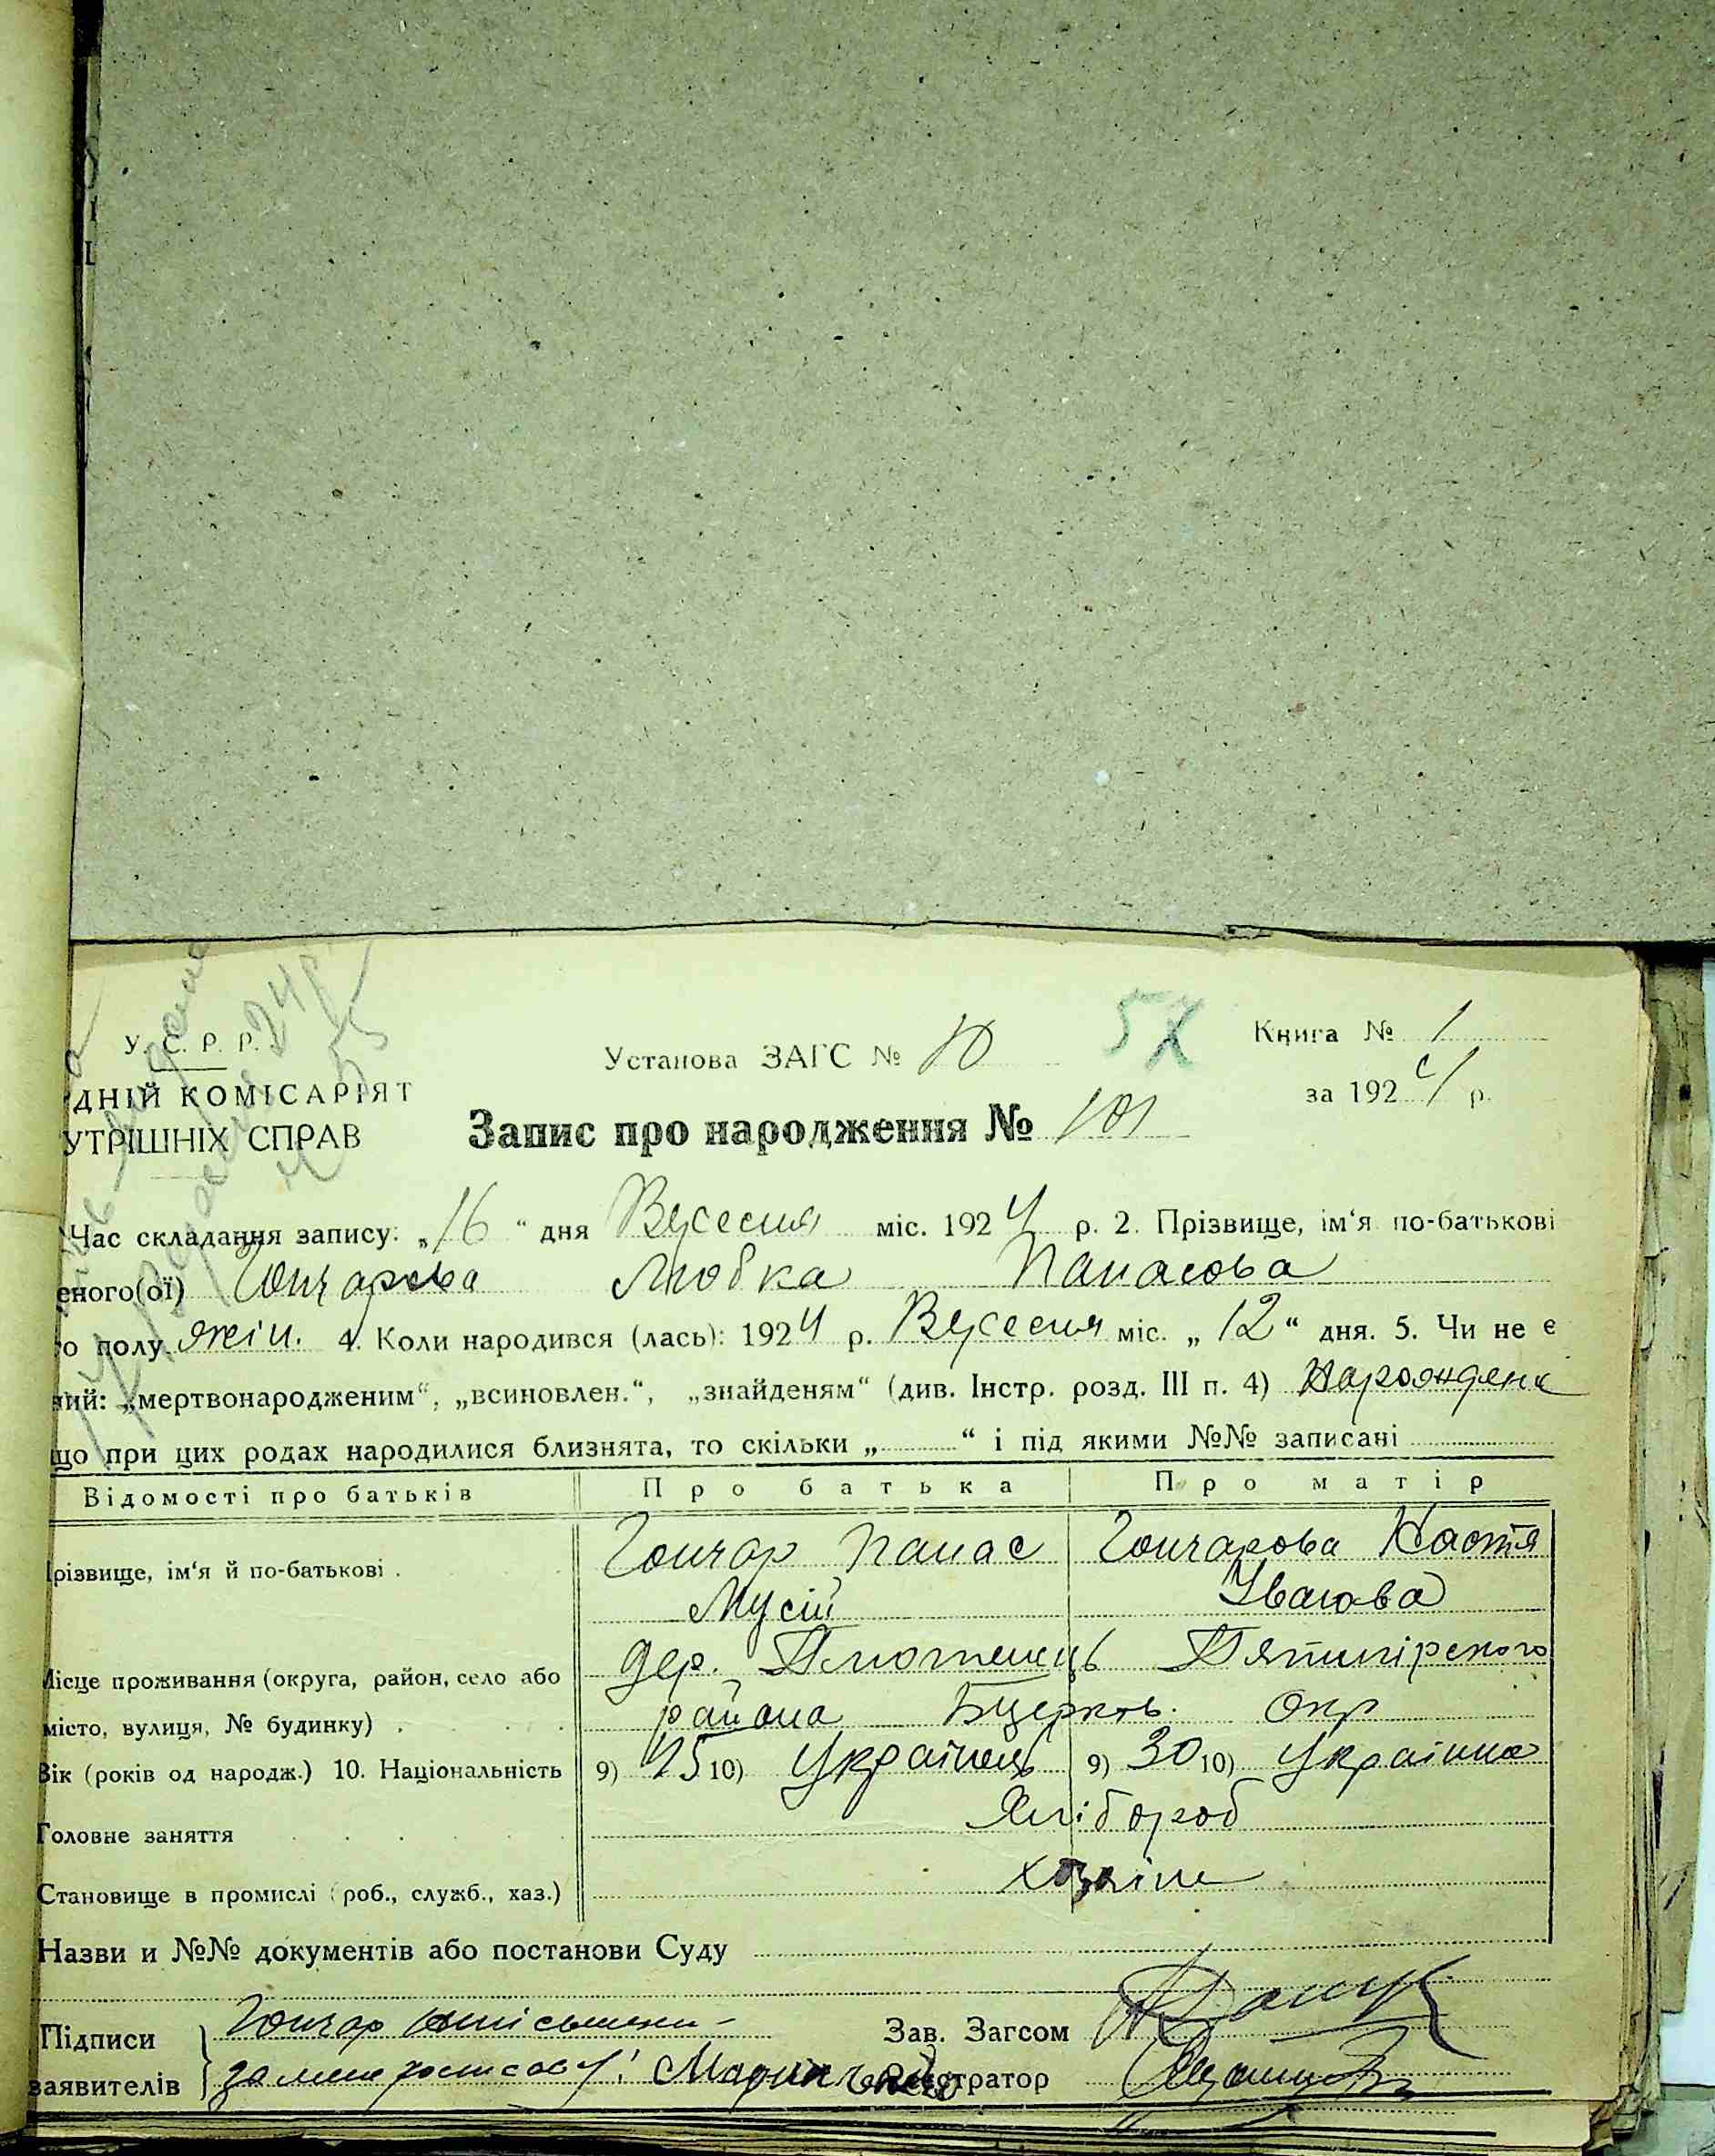 У. С. Р. Р.
Установа ЗАГС № 10
5X
Книга № 1
ДНІЙ КОМІСАРІЯТ
за 1924 р.
УТРІШНІХ СПРАВ
Запис про народження № 101
Час складання запису: „16“ дня Вересня міс. 1924 р. 2. Прізвище, ім‘я по-батькові
еного(ої) Гончарова Любка Панасова
го полу жін. 4. Коли народився (лась): 1924 р. Вересня міс. „12“ дня. 5. Чи не є
ний: „мертвонародженим“, „всиновлен.“, „знайденям“ (див. Інстр. розд. III п. 4) Народжена
що при цих родах народилися близнята, то скільки „ “ і під якими №№ записані
Відомості про батьків Про батька Про матір
Прізвище, ім‘я й по-батькові . Гончар Панас Гончарова Настя
Мусій Іванова
Місце проживання (округа, район, село або дер. Плютенець Пятигірского
місто, вулиця, № будинку) . району Бцерків. Окр
Вік (років од народж.) 10. Національність 9) 45 10) Українець 9) 30 10) Українка
Головне заняття Хлібороб
Становище в промислі (роб., служб., хаз.) хазяїне
Назви и №№ документів або постанови Суду
Підписи Гончар Зав. Загсом
заявителів за мене росписавс: Реєстратор